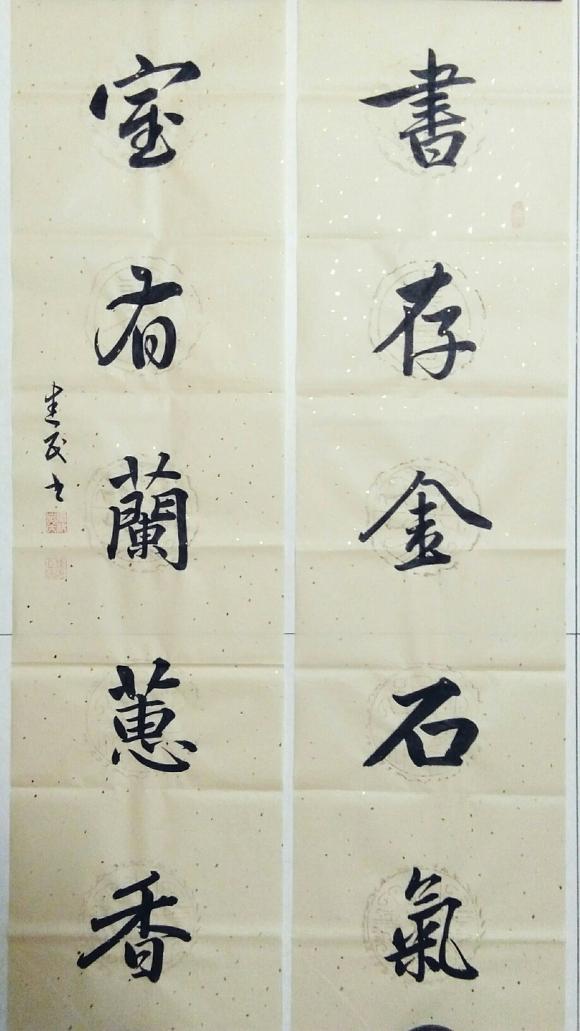 書存金石氣
室有蘭蕙香
建民书